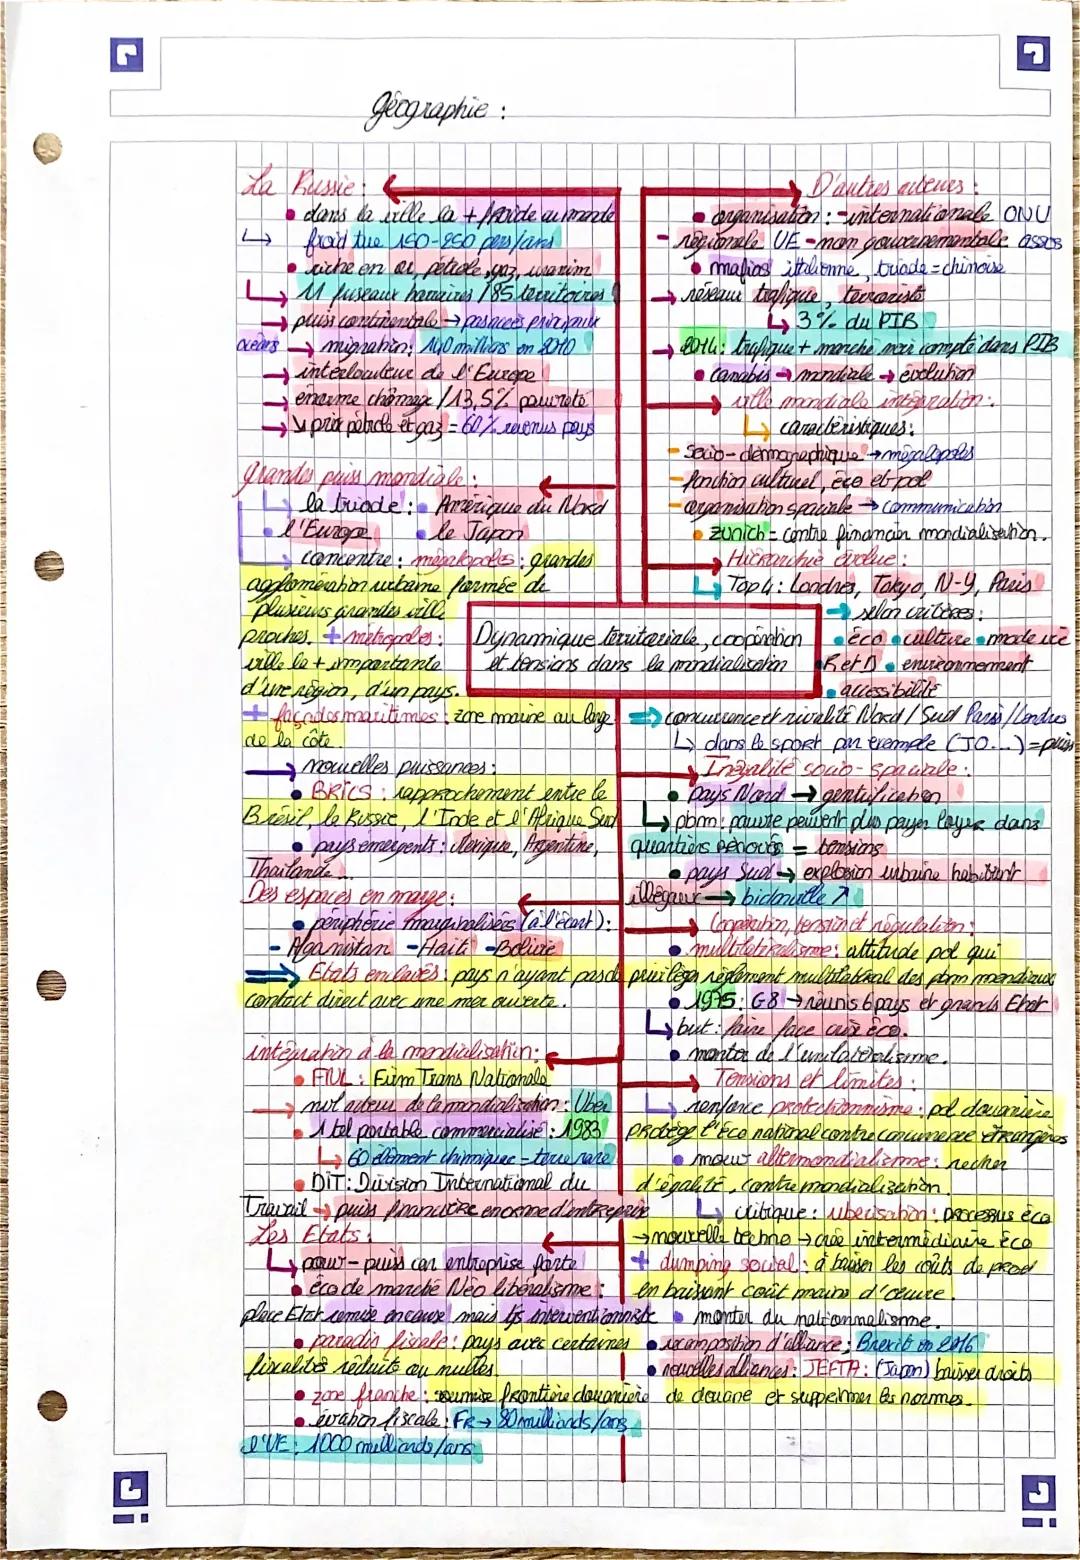 Géographie :
La Russie :
• dans la ville la + froide au monde
↳ froid tue 150-250 pers/ans
• riche en or, pétrole, gaz, uranim
↳ 11 fuseaux horaires / 85 territoires
→ puiss continentale → pas accès principaux
océans → migration : 140 millions en 2010
→ interlocuteur de l'Europe
→ énorme chômage / 13,5% pauvreté
→ ↘ prix pétrole et gaz = 60% revenus pays
grandes puiss mondiale :
↳ la triade : • Amérique du Nord
• l'Europe • le Japon
concentre : mégalopoles : grandes
agglomération urbaine formée de
plusieurs grandes ville
proches. + métropoles :
ville la + importante
d'une région, d'un pays.
+ façades maritimes : zone marine au large
de la côte.
→ nouvelles puissances :
• BRICS : rapprochement entre le
Brésil, la Russie, l'Inde et l'Afrique Sud
• pays émergents : Mexique, Argentine,
Thaïlande...
Des espaces en marge :
• périphérie marginalisées (à l'écart) :
- Afganistan - Haïti - Bolivie
⇒ Etats enclavés : pays n'ayant pas de
contact direct avec une mer ouverte.
intégration à la mondialisation :
• FNL : Firm Trans Nationale
→ nvl acteur de la mondialisation : Uber
• 1 tel portable commercialisé : 1983
↳ 60 élément chimique = terre rare
• DIT : Division International du
Travail → puiss financière enorme d'entreprise
Les Etats :
↳ pouv - puiss car entreprise forte
• éco de marché Néo libéralisme :
place Etat remise en cause mais tjs interventionniste
• paradis fiscale : pays avec certaines
fiscalités réduits ou nulles.
• zone franche : soumise frontière douanière
• évasion fiscale : FR → 80 milliards/ans
l'UE : 1000 milliards/ans
Dynamique territoriale, coopération
et tensions dans la mondialisation
D'autres acteurs :
• organisation : - internationale ONU
- régionale UE - non gouvernementale assos
• mafias ittalienne, triade = chinoise
→ réseau trafique, terroriste
↳ 3% du PIB
→ 2014 : trafique + marché noir compté dans PIB
• canabis → mondiale → évolution
→ ville mondiale intégration :
↳ caractéristiques :
- Socio-démographique → mégalopoles
- fonction culturel, éco et pol
- organisation spaciale → communication
• zurich = centre financier mondialisation.
→ Hiérarchie évolue :
↳ Top 4 : Londres, Tokyo, N-Y, Paris
→ selon critères :
• éco • culture • mode vie
• R et D • environnement
• accessibilité
⇒ concurrence et rivalité Nord / Sud Paris / Londres
↳ dans le sport par exemple (JO...) = puiss
→ Inégalité socio-spaciale :
• pays Nord → gentification
↳ pbm : pauvre peuvent plus payer loyer dans
quartiers rénovés = tensions
• pays Sud → explosion urbaine habitent
illégaux → bidonville ↗
→ Coopération, tension et régulation :
• multilatéralisme : attitude pol qui
privilégie règlement multilatéral des pbm mondiaux
• 1975 : G8 → réunis 6 pays et grands Etat
↳ but : faire face crise éco.
• monter de l'unilatéralisme.
→ Tensions et limites :
↳ renforce protectionnisme : pol douanière
protège l'éco national contre concurrence étrangères
• mouv altermondialisme : recher
d'égalité, contre mondialisation.
↳ critique : ubérisation : processus éco
→ nouvelle techno → crée intermédiaire éco
+ dumping social : à baisser les coûts de prod
en baissant coût main d'œuvre.
• monter du nationnalisme.
• recomposition d'alliance ; Brexit en 2016
• nouvelles alliances : JEFTA : (Japon) baisser droits
de douane et supprimer les normes.